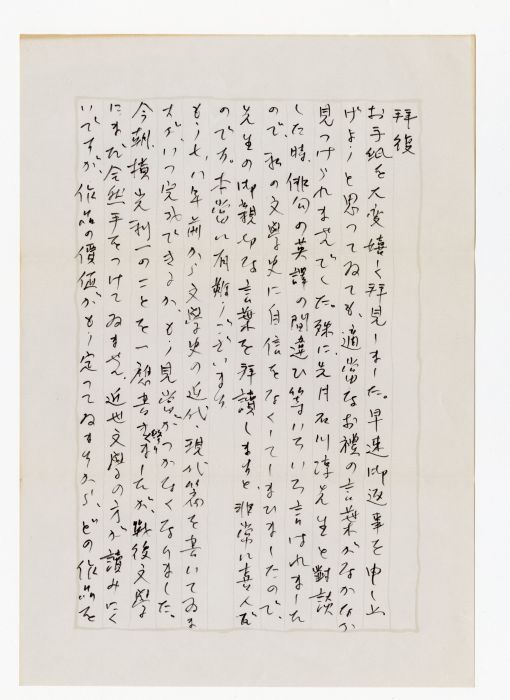 拝復
お手紙を大変嬉しく拝見しました。早速御返事を申し上
げようと思ってゐても、適当なお禮の言葉がなかなか
見つけられませんでした。殊に先月石川淳先生と對談
した時、俳句の英譯の間違ひ等いろいろ言はれました
ので、私の文學史に自信をなくしてしまひましたので、
先生の御親切な言葉を拝讀しますと、非常に喜んだ
のです。本当に有難うございます。
もう七八年前から文學史の近代・現代篇を書いてゐま
すが、いつ完成できるか、もう見当がつかなくなりました。
今朝、横光利一のことを一應書き終りましたが、戦後文學
にまだ全然手をつけてゐません。近世文學の方が讀みにく
いですが、作品の價値がもう定ってゐますから、どの作品を